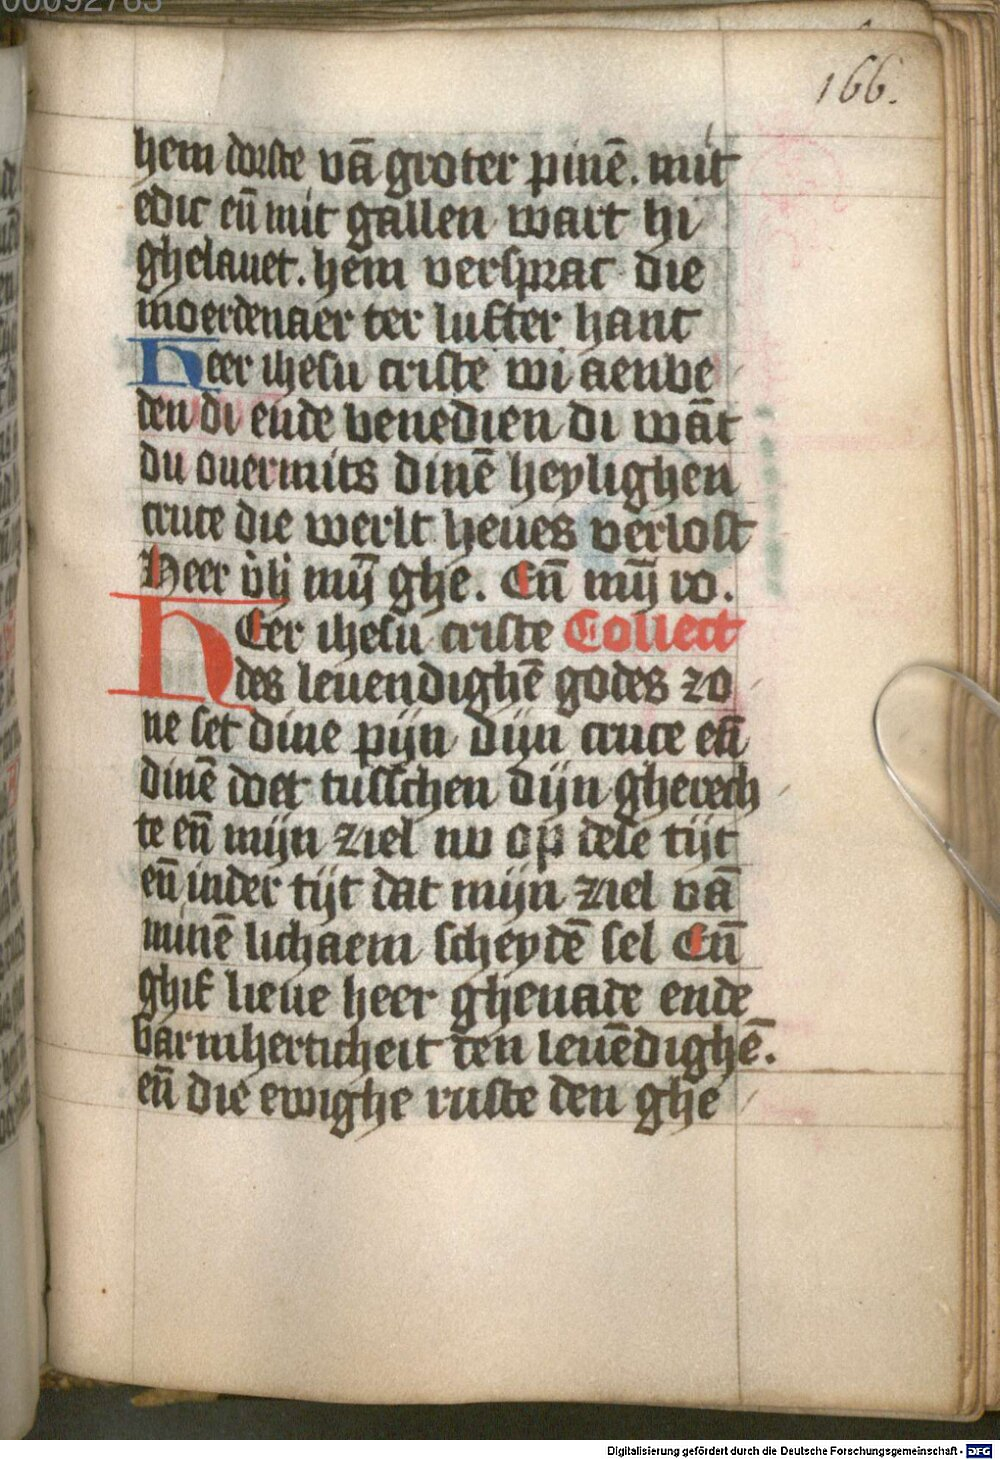 00092763
166.
hem dorste vā groter pinē. mit
edic eñ mit gallen wart hi
ghelauet. hem versprac die
moerdenaer ter lufter hant
Heer ihesu criste wi aenbe
den di ende benedien di wāt
du ouermits dinē heylighen
cruce die werlt heues verlost
Heer v̓lj mȳ ghe. Eñ mȳ ro.
HEer ihesu criste Collect
des leuendighē godes zo
ne set dine pijn dijn cruce eñ
dinē doet tusschen dijn gherech
te eñ mijn ziel nv op dese tijt
eñ inder tijt dat mijn ziel vā
minē lichaem scheydē sel Eñ
ghif lieue heer ghenade ende
barmherticheit den leuēdighē.
eñ die ewighe ruste den ghe
Digitalisierung gefördert durch die Deutsche Forschungsgemeinschaft - DFG